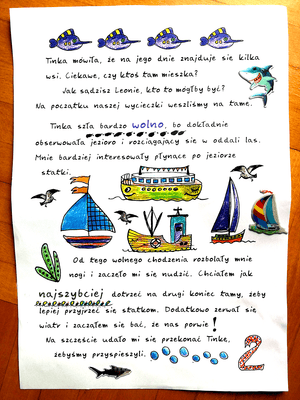 Tinka mówiła, że na jego dnie znajduje się kilka
wsi. Ciekawe, czy ktoś tam mieszka?
Jak sądzisz Leonie, kto to mógłby być?
Na początku naszej wycieczki weszliśmy na tamę.
Tinka szła bardzo wolno, bo dokładnie
obserwowała jezioro i rozciągający się w oddali las.
Mnie bardziej interesowały płynące po jeziorze
statki.
Od tego wolnego chodzenia rozbolały mnie
nogi i zaczęło mi się nudzić. Chciałem jak
najszybciej dotrzeć na drugi koniec tamy, żeby
lepiej przyjrzeć się statkom. Dodatkowo zerwał się
wiatr i zacząłem się bać, że nas porwie!
Na szczęście udało mi się przekonać Tinkę,
żebyśmy przyspieszyli.